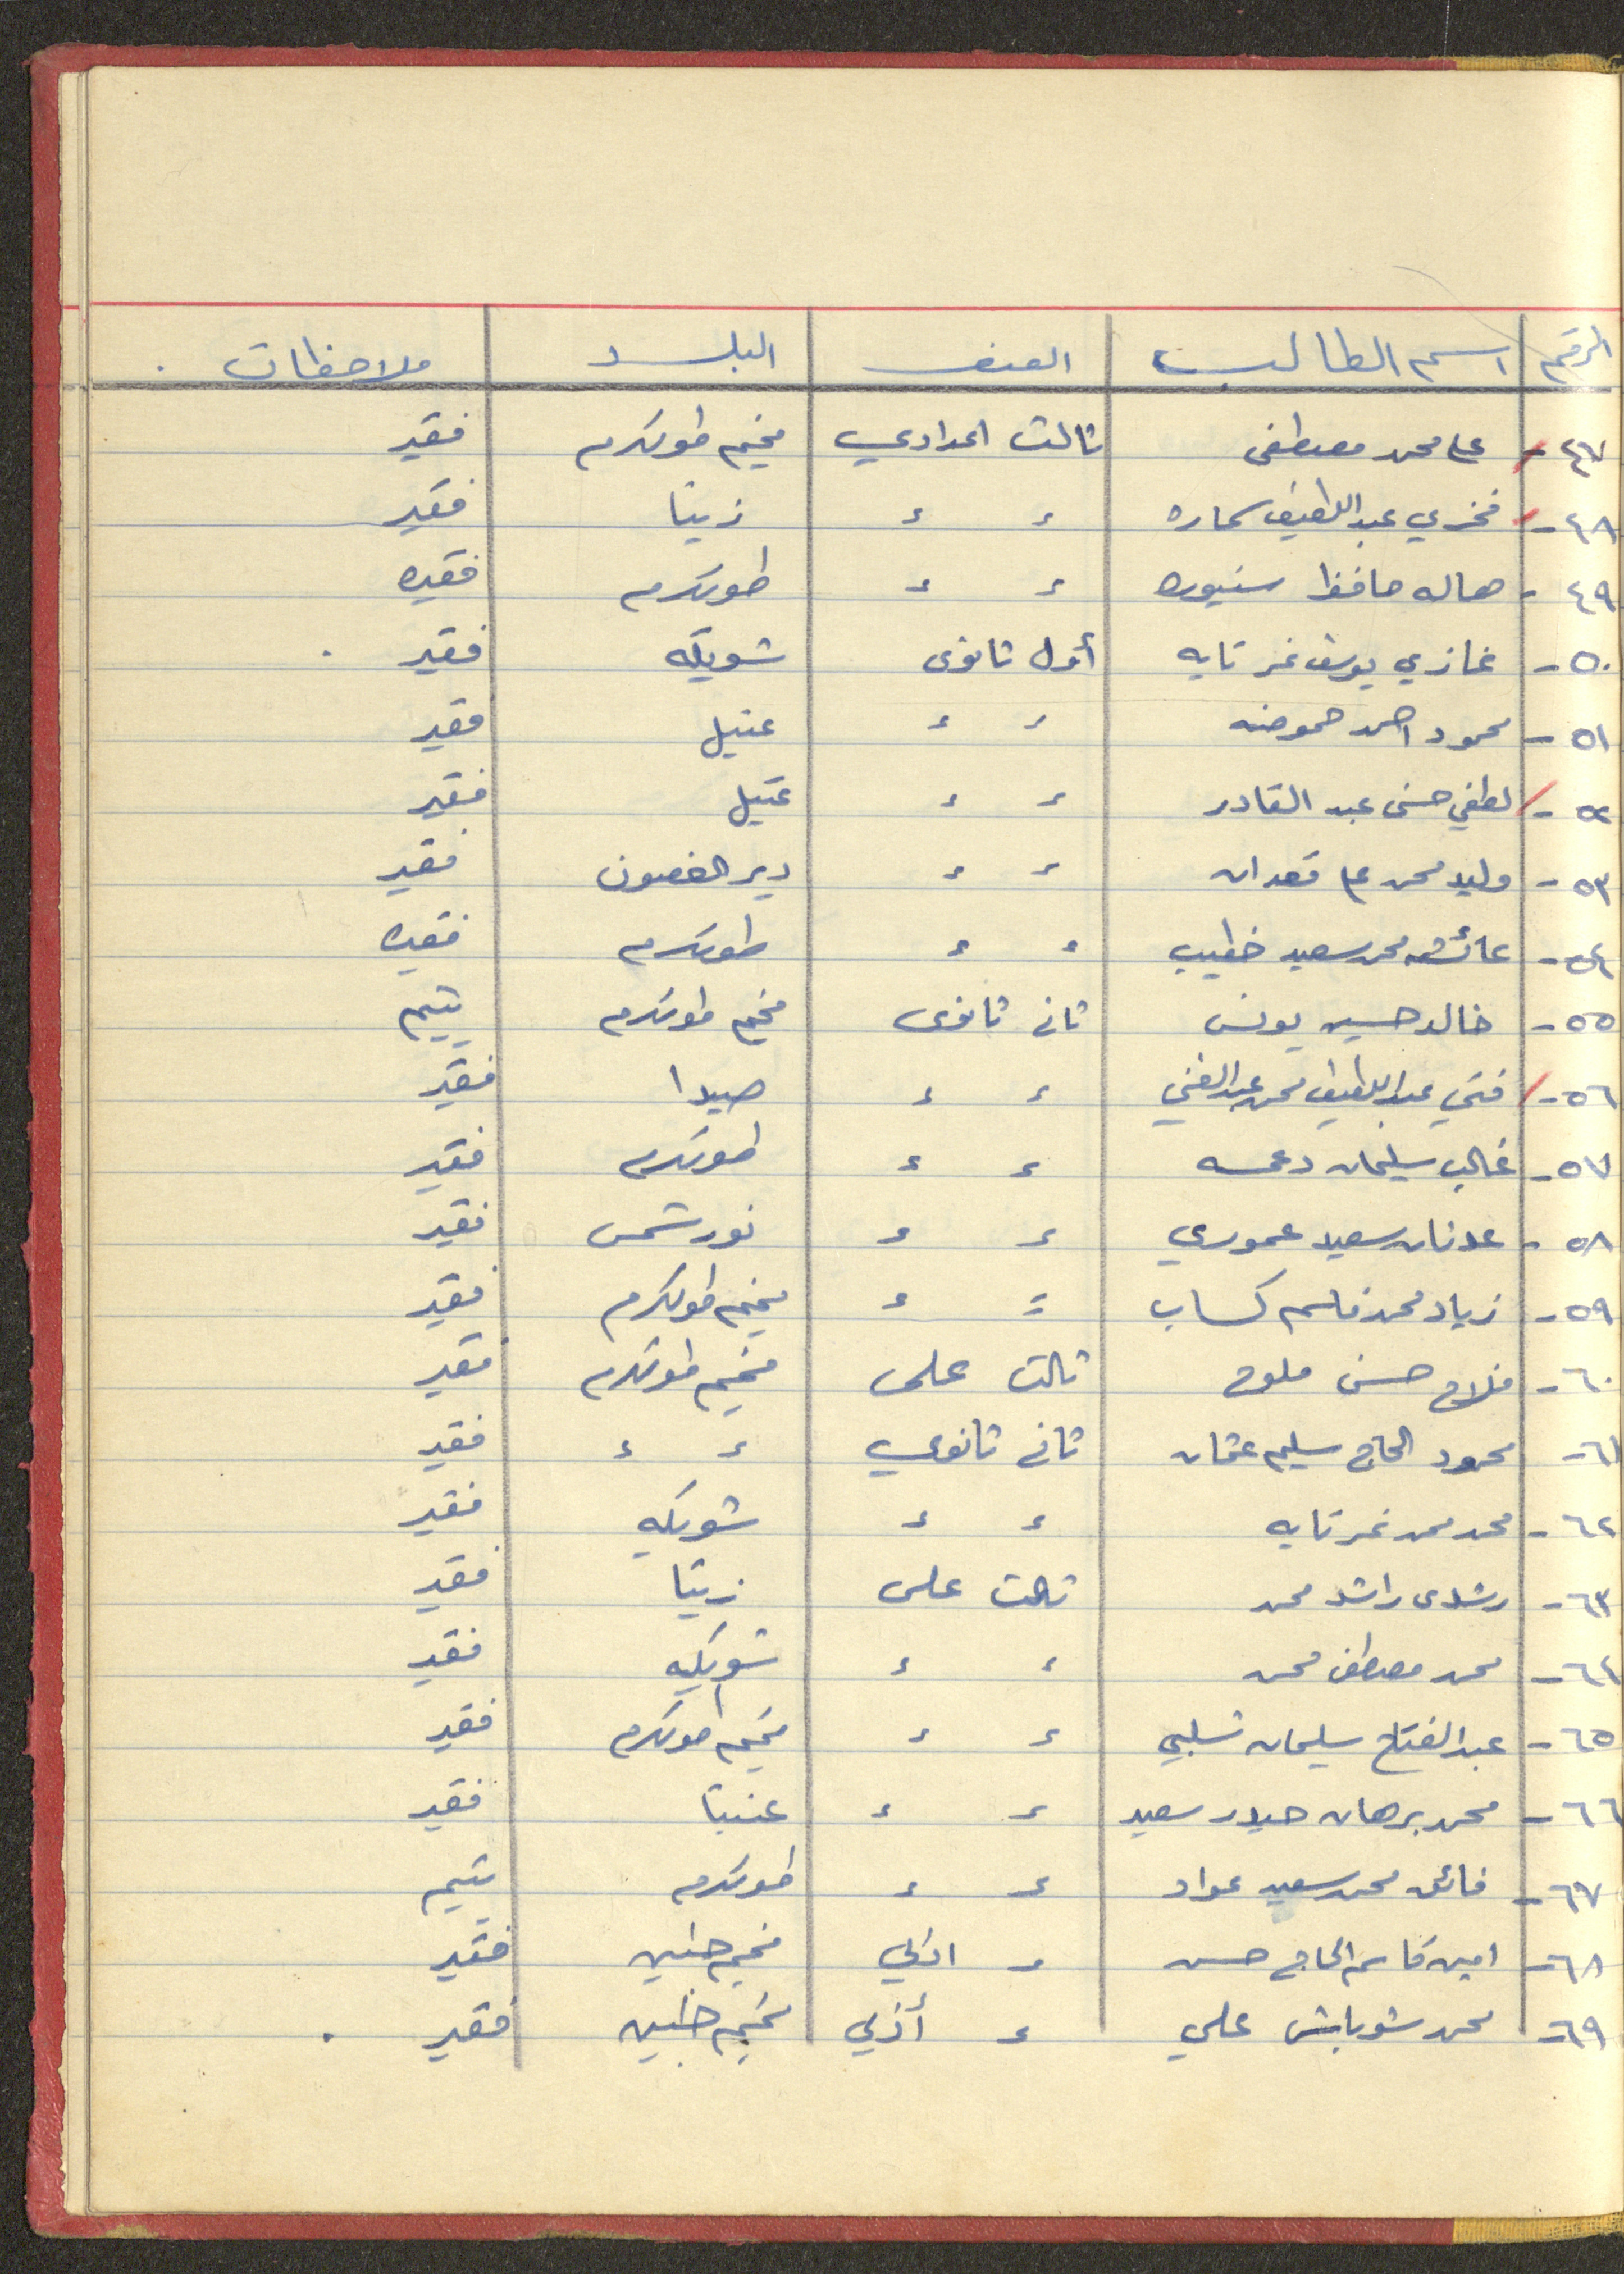 الرقم اسم الطالب الصف البلد ملاحظات
٤٧- علي محمد مصطفى ثالث اعدادي مخيم طولكرم فقير
٤٨- فخري عبد اللطيف سماره ء ء زيتا فقير
٤٩- هاله حافظ سنيوره ء ء طولكرم فقيره
٥٠- غازي يوسف نمر تايه أول ثانوي شويكه فقير
٥١- محمود احمد حموضه ء ء عتيل فقير
٥٢- لطفي حسني عبد القادر ء ء عتيل فقير
٥٣- وليد محمد علي قعدان ء ء دير الغصون فقير
٥٤- عائشه محمد سعيد خطيب ء ء طولكرم فقيره
٥٥- خالد حسين يونس ثاني ثانوي مخيم طولكرم يتيم
٥٦- فتحي عبد اللطيف محمد عبد الغني ء ء صيدا فقير
٥٧- غالب سليمان دعمه ء ء طولكرم فقير
٥٨- عدنان سعيد عموري ء ء نور شمس فقير
٥٩- زياد محمد قاسم كساب = ء مخيم طولكرم فقير
٦٠- فلاح حسن ملوح ثالث علمي مخيم طولكرم فقير
٦١- محمود الحاج سليم عثمان ثاني ثانوي ء ء فقير
٦٢- محمد محمد نمر تايه ء ء شويكه فقير
٦٣- رشدي راشد محمد ثالث علمي زيتا فقير
٦٤- محمد مصطفى محمد ء ء شويكه فقير
٦٥- عبد الفتاح سليمان شلبي ء ء مخيم طولكرم فقير
٦٦- محمد برهان حيدر سعيد ء ء عنبتا فقير
٦٧- فائق محمد سعيد عواد ء ء طولكرم يتيم
٦٨- امين قاسم الحاج حسن ء ادبي مخيم جنين فقير
٦٩- محمد شوباش علي ء أدبي مخيم جنين فقير